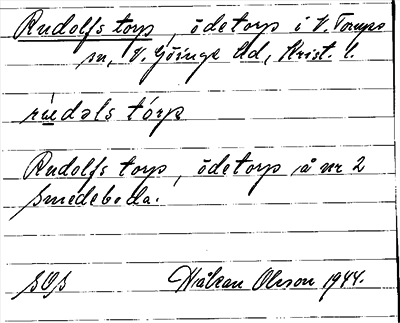 Rudolfs torp, ödetorp i V. Torups
sn, V. Göinge hd, Krist. l.
rúdəls tórp
Rudolfs torp, ödetorp å nr 2
Smedeboda.
SOS Håkan Olsson 1944.